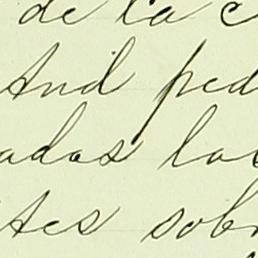 de la c
And ped
adas la
tes sobr